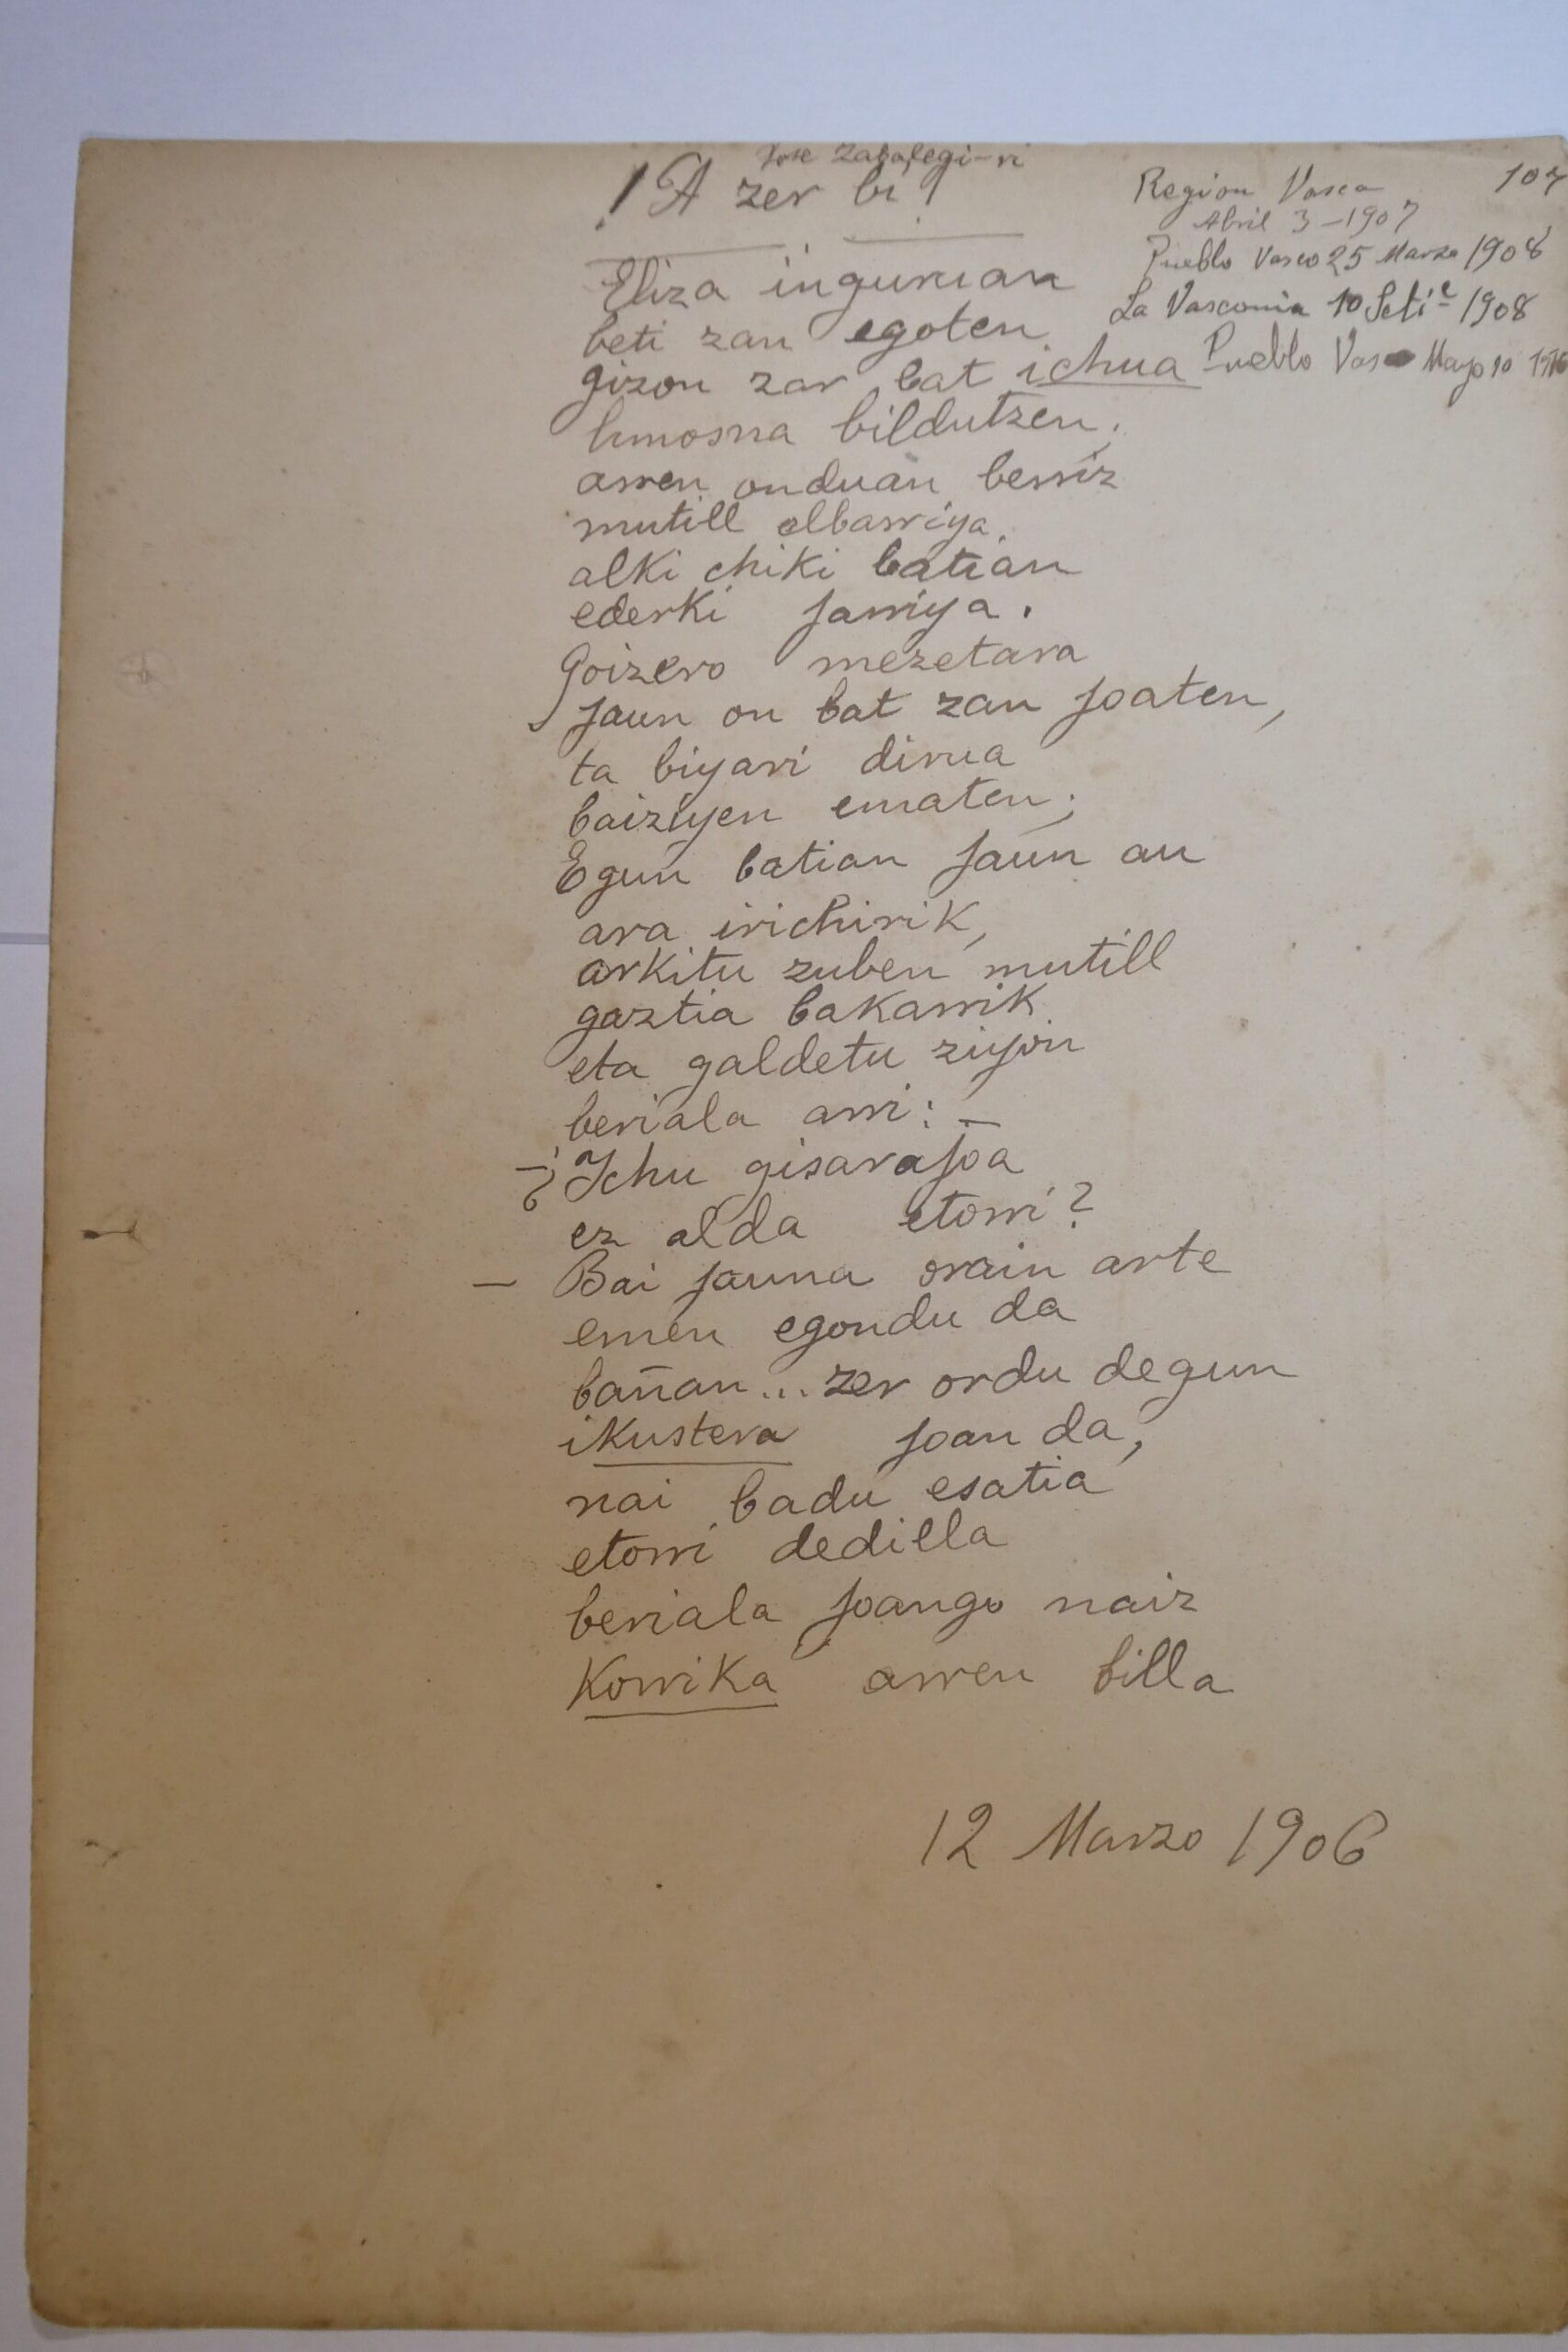 Jose Zabalegi-ri
¡A zer bi!
107
Region Vasca
Abril 3-1907
Pueblo Vasco 25 Marzo 1908
La Vasconia 10 Setie 1908
Pueblo Vasco Mayo 10
Eliza inguruan
beti zan egoten
gizon zar bat ichua
limosna bildutzen;
arren onduan berriz
mutill elbarriya
alki chiki batian
ederki jarriya.
Goizero mezetara
jaun on bat zan joaten,
ta biyari dirua
baiziyen ematen;
Egun batian jaun au
ara irichirik,
arkitu zuben mutill
gaztia bakarrik
eta galdetu ziyon
beriala arri: —
—¿Ichu gisarajoa
ez alda etorri?
— Bai jauna orain arte
emen egondu da
bañan... zer ordu degun
ikustera joan da,
nai badu esatia
etorri dedilla
beriala joango naiz
korrika arren billa
12 Marzo 1906